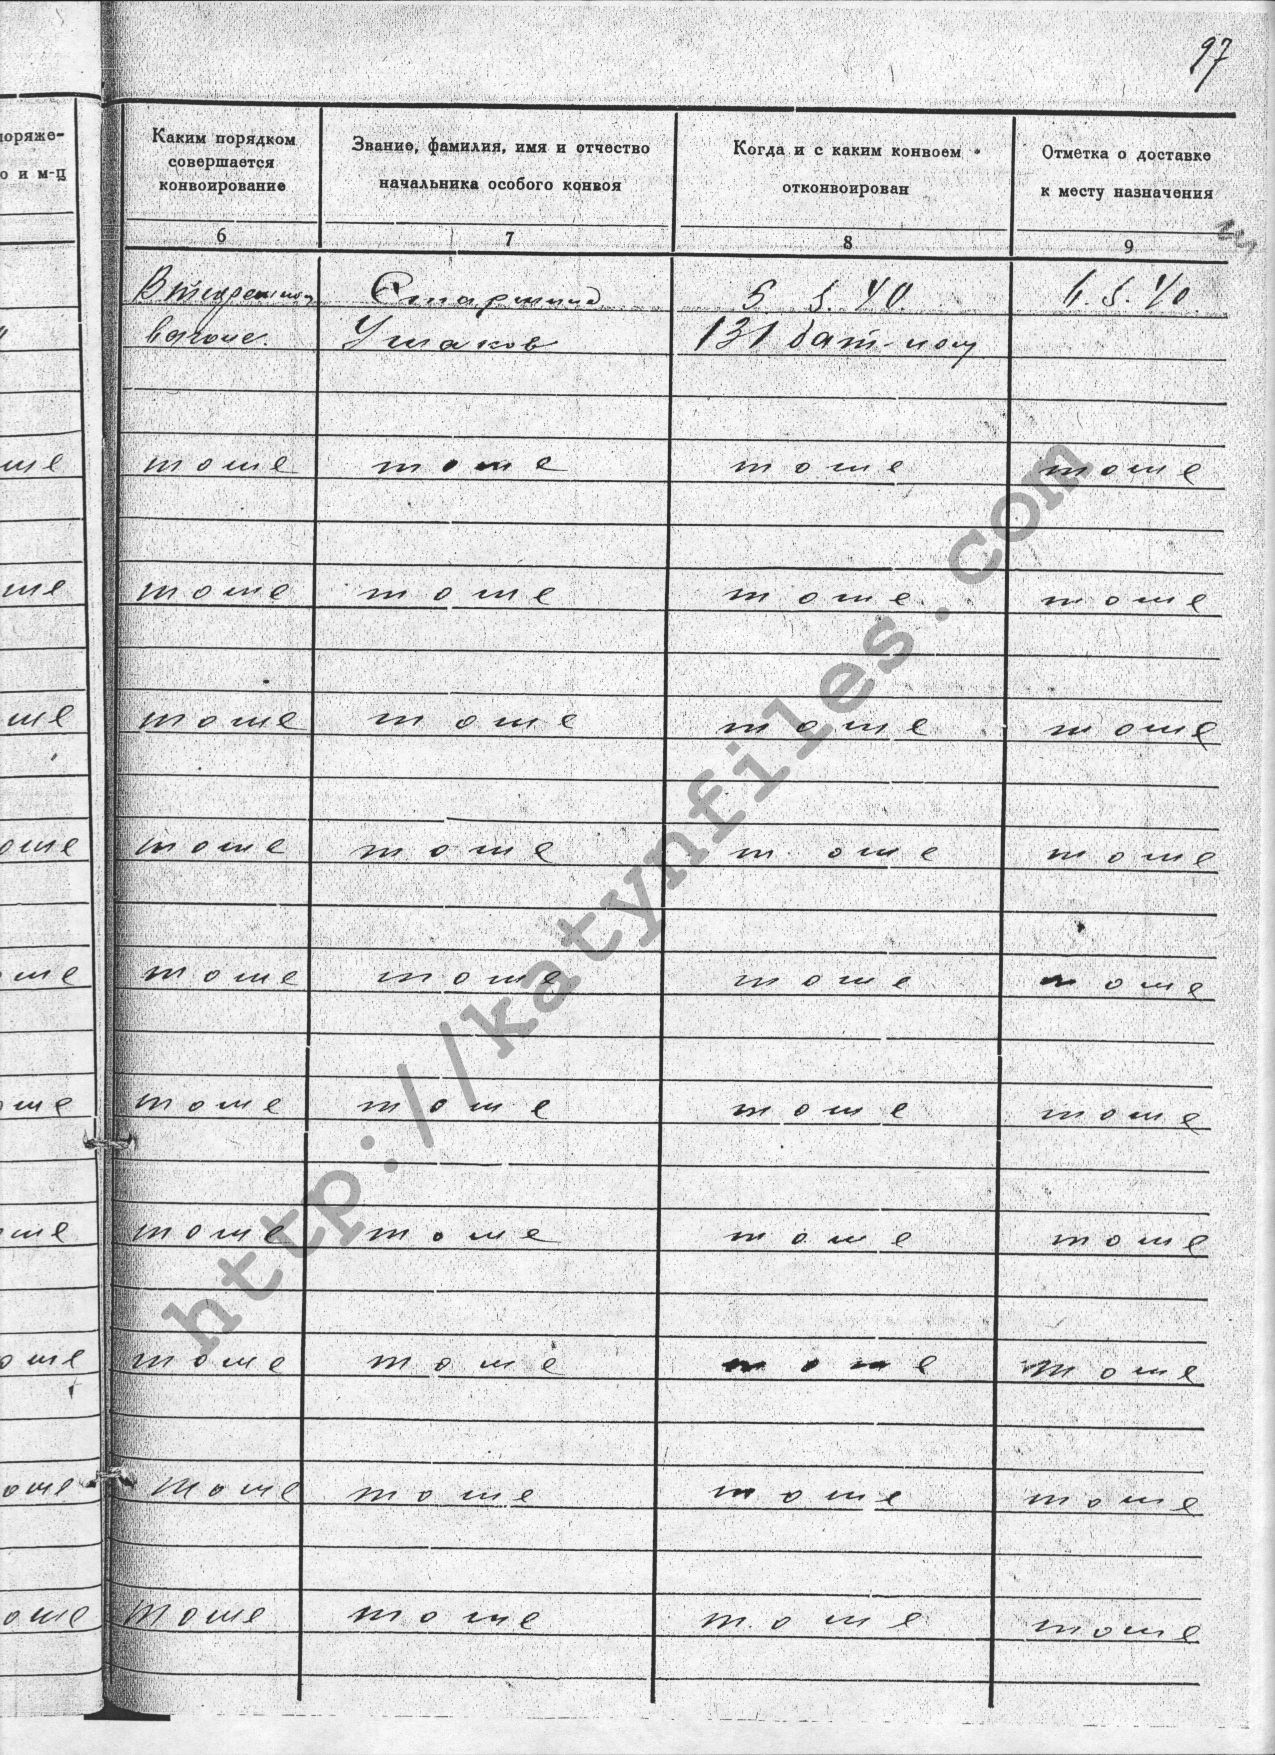 97
поряже-
о и м-ц
Каким порядком
совершается
конвоирование
Звание, фамилия, имя и отчество
начальника особого конвоя
Когда и с каким конвоем
отконвоирован
Отметка о доставке
к месту назначения
6 7 8 9
Старшина 5 5. 40. 6. 5. 40
вагоне. Ушаков 131 бат-ном
ше тоше тоше тоше тоше
ше тоше тоше тоше тоше
ше тоше тоше тоше тоше
оше тоше тоше тоше тоше
оше тоше тоше тоше тоше
оше тоше тоше тоше тоше
оше тоше тоше тоше тоше
оше тоше тоше тоше тоше
оше тоше тоше тоше тоше
оше тоше тоше тоше тоше
http://katynfiles.com